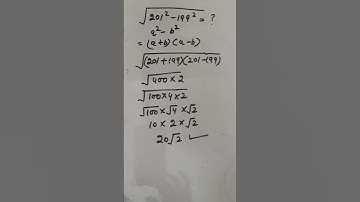 √201² - 199² = ?
a² - b²
= (a+b) (a-b)
√(201+199)(201-199)
√400 × 2
√100 × 4 × 2
√100 × √4 × √2
10 × 2 × √2
20√2